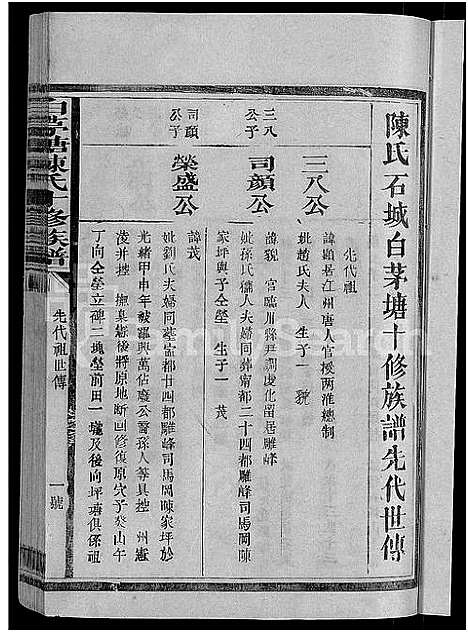 陳氏石城白茅塘十修族譜先代世傳
先代祖
三八公
諱顯居江州唐人官授兩淮總制
妣趙氏夫人 生子一 貌
三八公子
司顔公
諱貌 官臨川縣尹調虔化留居雕峰
妣孫氏儒人夫婦同葬甯都二十四都雕峰司馬岡陳
家坪與子仝塋 生子一 茂
司顔公子
榮盛公
諱茂
妣劉氏夫婦同塋甯都廿四都雕峰司馬岡陳家坪於
光緒甲申年被羅興萬佔廢公醫孫人等具控 州憲
淩并控 撫臬憲後將原地断囬修復原穴子癸山午
丁向仝塋立碑三塊塋前田一墢及後向坪墻俱係祖
白茅塘陳氏十修族譜
先代祖世傳
一號
FamilySearch